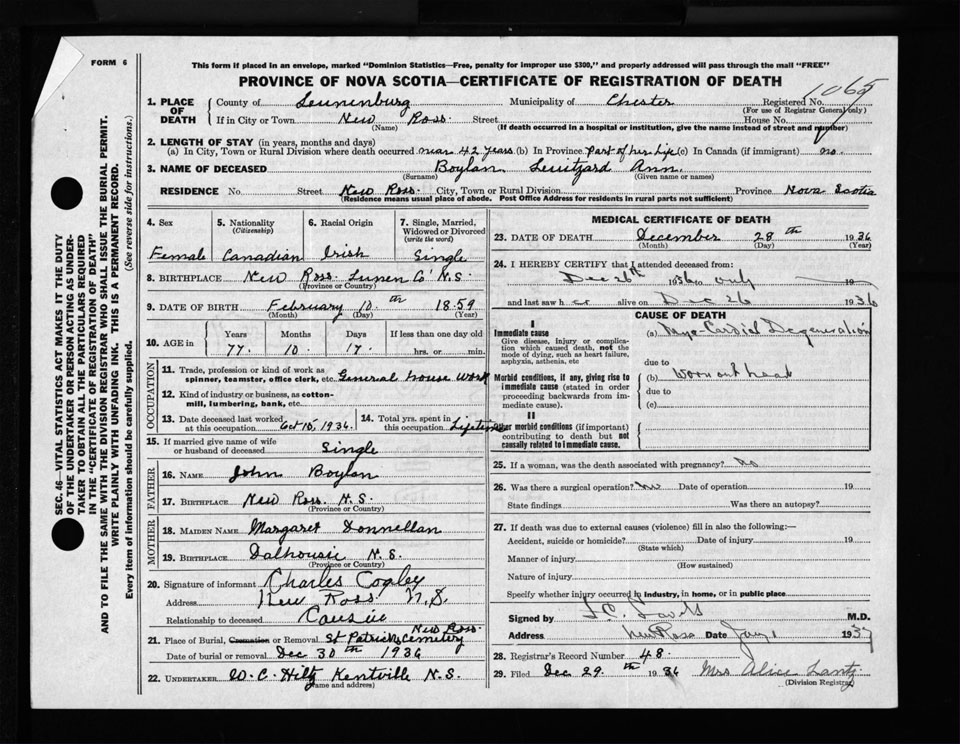 FORM 6
This form if placed in an envelope, marked "Dominion Statistics—Free, penalty for improper use $300," and properly addressed will pass through the mail "FREE"
PROVINCE OF NOVA SCOTIA—CERTIFICATE OF REGISTRATION OF DEATH
1. PLACE OF DEATH County of Lunenburg Municipality of Chester Registered No. 1065
(For use of Registrar General only)
If in City or Town New Ross Street House No.
(Name) (If death occurred in a hospital or institution, give the name instead of street and number)
2. LENGTH OF STAY (in years, months and days)
(a) In City, Town or Rural Division where death occurred near 42 years (b) In Province Part of her life (c) In Canada (if immigrant) no.
3. NAME OF DECEASED Boylan Ann.
(Surname) (Given name or names)
RESIDENCE No. Street New Ross. City, Town or Rural Division Province Nova Scotia
(Residence means usual place of abode. Post Office Address for residents in rural parts not sufficient)
4. Sex 5. Nationality (Citizenship) 6. Racial Origin 7. Single, Married, Widowed or Divorced (write the word)
Female Canadian Irish Single
8. BIRTHPLACE New Ross Lunen Co N.S.
(Province or Country)
9. DATE OF BIRTH February 10th 1859
(Month) (Day) (Year)
10. AGE in Years Months Days If less than one day old
77. 10 17. hrs. or min.
OCCUPATION
11. Trade, profession or kind of work as spinner, teamster, office clerk, etc. General house work
12. Kind of industry or business, as cotton-mill, lumbering, bank, etc.
13. Date deceased last worked at this occupation Oct 10, 1936.
14. Total yrs. spent in this occupation Lifetime
15. If married give name of wife or husband of deceased Single
FATHER
16. NAME John Boylan
17. BIRTHPLACE New Ross N.S.
(Province or Country)
MOTHER
18. MAIDEN NAME Margaret Donnellan
19. BIRTHPLACE Dalhousie N.S.
(Province or Country)
20. Signature of informant Charles Cogley
Address New Ross N.S.
Relationship to deceased Cousin
21. Place of Burial, Cremation or Removal St Patricks Cemetery New Ross.
Date of burial or removal Dec 30th 1936
22. UNDERTAKER W. C. Hiltz Kentville N.S.
(Name and address)
MEDICAL CERTIFICATE OF DEATH
23. DATE OF DEATH December 28th 1936
(Month) (Day) (Year)
24. I HEREBY CERTIFY that I attended deceased from:
Dec 26th 1936 to only 19
and last saw her alive on Dec 26 1936
CAUSE OF DEATH
I
Immediate cause
Give disease, injury or complication which caused death, not the mode of dying, such as heart failure, asphyxia, asthenia, etc
(a) Myo-Cardial Degeneration
due to
Morbid conditions, if any, giving rise to immediate cause (stated in order proceeding backwards from immediate cause).
(b) Worn out heart
due to
(c)
II
Other morbid conditions (if important) contributing to death but not causally related to immediate cause.
25. If a woman, was the death associated with pregnancy? No
26. Was there a surgical operation? no Date of operation 19
State findings Was there an autopsy?
27. If death was due to external causes (violence) fill in also the following:—
Accident, suicide or homicide? Date of injury 19
(State which)
Manner of injury
(How sustained)
Nature of injury
Specify whether injury occurred in industry, in home, or in public place
Signed by M.D.
Address New Ross Date Jany 1 1937
28. Registrar's Record Number 48.
29. Filed Dec 29.th 1936 Mrs Alice Lantz
(Division Registrar)
SEC. 46—VITAL STATISTICS ACT MAKES IT THE DUTY
OF THE UNDERTAKER OR PERSON ACTING AS UNDER-
TAKER TO OBTAIN ALL THE PARTICULARS REQUIRED
IN THE "CERTIFICATE OF REGISTRATION OF DEATH"
AND TO FILE THE SAME WITH THE DIVISION REGISTRAR WHO SHALL ISSUE THE BURIAL PERMIT.
WRITE PLAINLY WITH UNFADING INK. THIS IS A PERMANENT RECORD.
Every item of information should be carefully supplied. (See reverse side for instructions.)